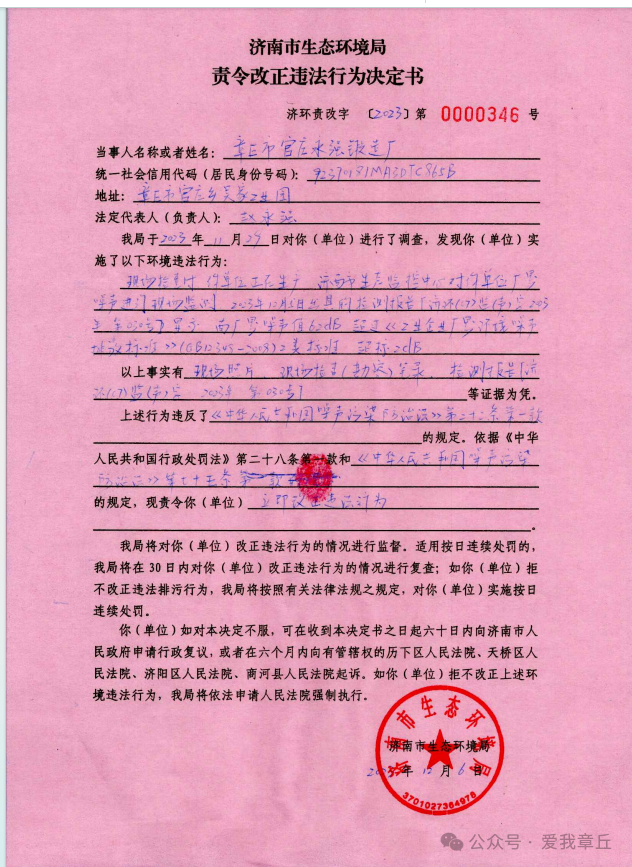 济南市生态环境局
责令改正违法行为决定书
济环责改字 〔2023〕第 0000346 号
当事人名称或者姓名：章丘市官庄永强锻造厂
统一社会信用代码（居民身份证号码）：92370181MA3DTC865B
地址：章丘市官庄乡吴家工业园
法定代表人（负责人）：赵永强
我局于2023年11月29日对你（单位）进行了调查，发现你（单位）实
施了以下环境违法行为：
现场检查时，你单位正在生产，济南市生态监控中心对你单位厂界
噪声进行现场监测，2023年12月5日出具的检测报告
显示，南厂界噪声值62dB，超过《工业企业厂界环境噪声
排放标准》(GB12348-2008)2类标准，超标2dB
以上事实有 现场照片、现场检查(勘察)笔录、检测报告[济
环(04)监(声)字 2023年 第030号] 等证据为凭。
上述行为违反了《中华人民共和国噪声污染防治法》第二十二条第一款
的规定。依据《中华
人民共和国行政处罚法》第二十八条第一款和《中华人民共和国噪声污染
防治法》第七十五条
的规定，现责令你（单位）立即改正违法行为
。
我局将对你（单位）改正违法行为的情况进行监督。适用按日连续处罚的，
我局将在30日内对你（单位）改正违法行为的情况进行复查；如你（单位）拒
不改正违法排污行为，我局将按照有关法律法规之规定，对你（单位）实施按日
连续处罚。
你（单位）如对本决定不服，可在收到本决定书之日起六十日内向济南市人
民政府申请行政复议，或者在六个月内向有管辖权的历下区人民法院、天桥区人
民法院、济阳区人民法院、商河县人民法院起诉。如你（单位）拒不改正上述环
境违法行为，我局将依法申请人民法院强制执行。
济南市生态环境局
济南市生态环境局
2023年12月6日
3701027364976
公众号·爱我章丘